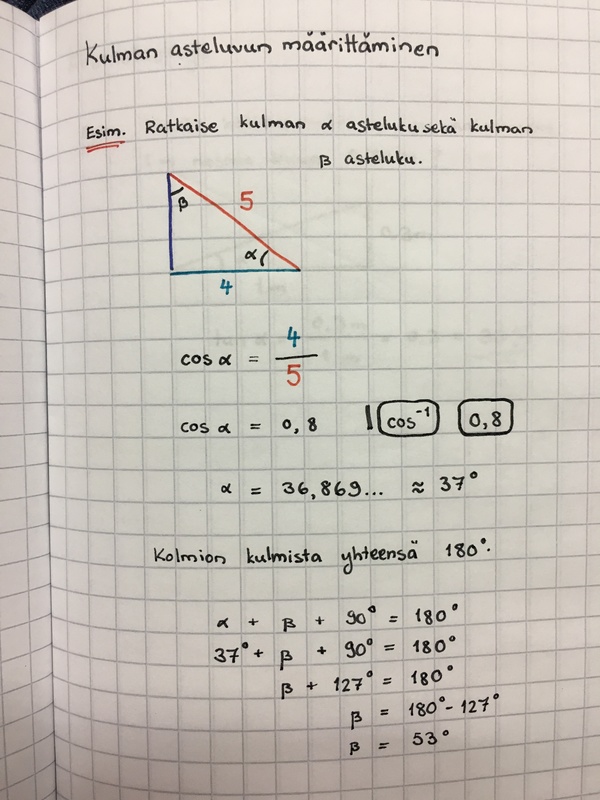 Kulman asteluvun määrittäminen
Esim. Ratkaise kulman α asteluku sekä kulman
β asteluku.
β
5
α
4
cos α = 4/5
cos α = 0,8 | cos⁻¹ 0,8
α = 36,869... ≈ 37°
Kolmion kulmista yhteensä 180°.
α + β + 90° = 180°
37° + β + 90° = 180°
β + 127° = 180°
β = 180° - 127°
β = 53°